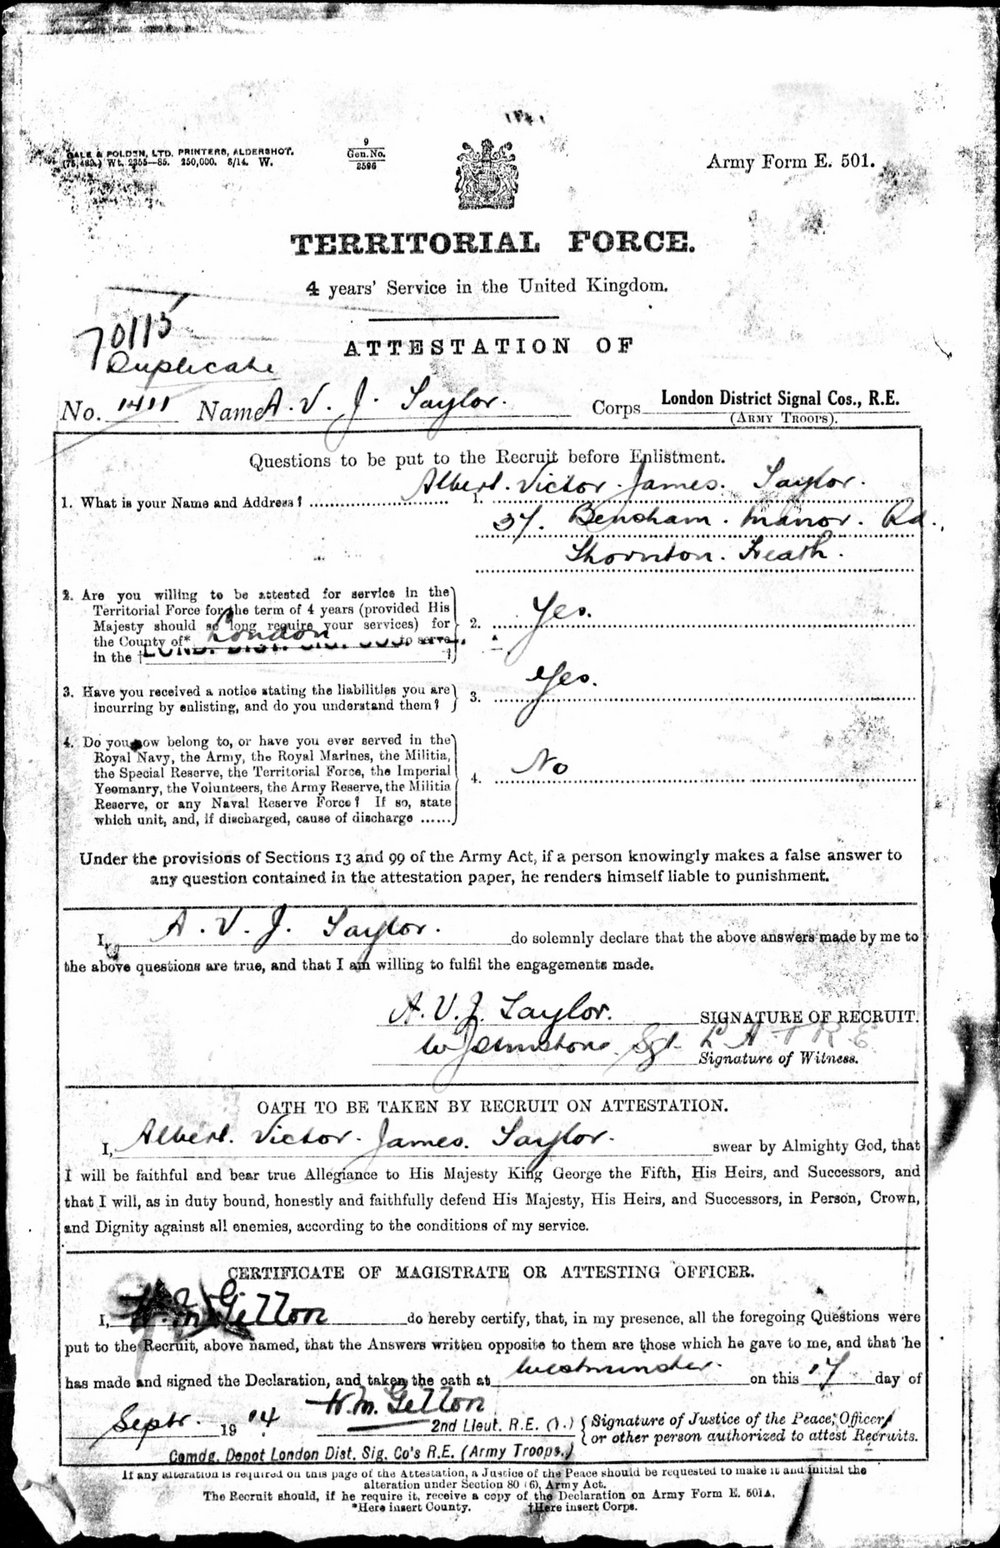 GALE & POLDEN, LTD. PRINTERS, ALDERSHOT.
Wt. 2255—85. 250,000. 8/14. W.
9
Gen. No.
2596
Army Form E. 501.
TERRITORIAL FORCE.
4 years' Service in the United Kingdom.
70115
Duplicate
ATTESTATION OF
No. 1411 Name A. V. J. Taylor. Corps London District Signal Cos., R.E.
(ARMY TROOPS).
Questions to be put to the Recruit before Enlistment.
1. What is your Name and Address? 1. Albert. Victor. James. Taylor.
37. Bensham. Manor. Rd.,
Thornton. Heath.
2. Are you willing to be attested for service in the
Territorial Force for the term of 4 years (provided His
Majesty should so long require your services) for
the County of* London to serve
in the † LOND. DIST. SIG. COS. ?
2. Yes.
3. Have you received a notice stating the liabilities you are
incurring by enlisting, and do you understand them?
3. Yes.
4. Do you now belong to, or have you ever served in the
Royal Navy, the Army, the Royal Marines, the Militia,
the Special Reserve, the Territorial Force, the Imperial
Yeomanry, the Volunteers, the Army Reserve, the Militia
Reserve, or any Naval Reserve Force? If so, state
which unit, and, if discharged, cause of discharge ......
4. No
Under the provisions of Sections 13 and 99 of the Army Act, if a person knowingly makes a false answer to
any question contained in the attestation paper, he renders himself liable to punishment.
I, A. V. J. Taylor. do solemnly declare that the above answers made by me to
the above questions are true, and that I am willing to fulfil the engagements made.
A. V. J. Taylor. SIGNATURE OF RECRUIT.
W Johnstone Sgt. R E
Signature of Witness.
OATH TO BE TAKEN BY RECRUIT ON ATTESTATION.
I, Albert. Victor. James. Taylor. swear by Almighty God, that
I will be faithful and bear true Allegiance to His Majesty King George the Fifth, His Heirs, and Successors, and
that I will, as in duty bound, honestly and faithfully defend His Majesty, His Heirs, and Successors, in Person, Crown,
and Dignity against all enemies, according to the conditions of my service.
CERTIFICATE OF MAGISTRATE OR ATTESTING OFFICER.
I, H. M. Gellon do hereby certify, that, in my presence, all the foregoing Questions were
put to the Recruit, above named, that the Answers written opposite to them are those which he gave to me, and that he
has made and signed the Declaration, and taken the oath at Westminster. on this 17 day of
Septr. 1914 H. M. Gellon
2nd Lieut. R.E. (T.) Signature of Justice of the Peace, Officer,
or other person authorized to attest Recruits.
Comdg. Depot London Dist. Sig. Co's R.E. (Army Troops.)
If any alteration is required on this page of the Attestation, a Justice of the Peace should be requested to make it and initial the
alteration under Section 80 (6), Army Act.
The Recruit should, if he require it, receive a copy of the Declaration on Army Form E. 501A.
*Here insert County. †Here insert Corps.